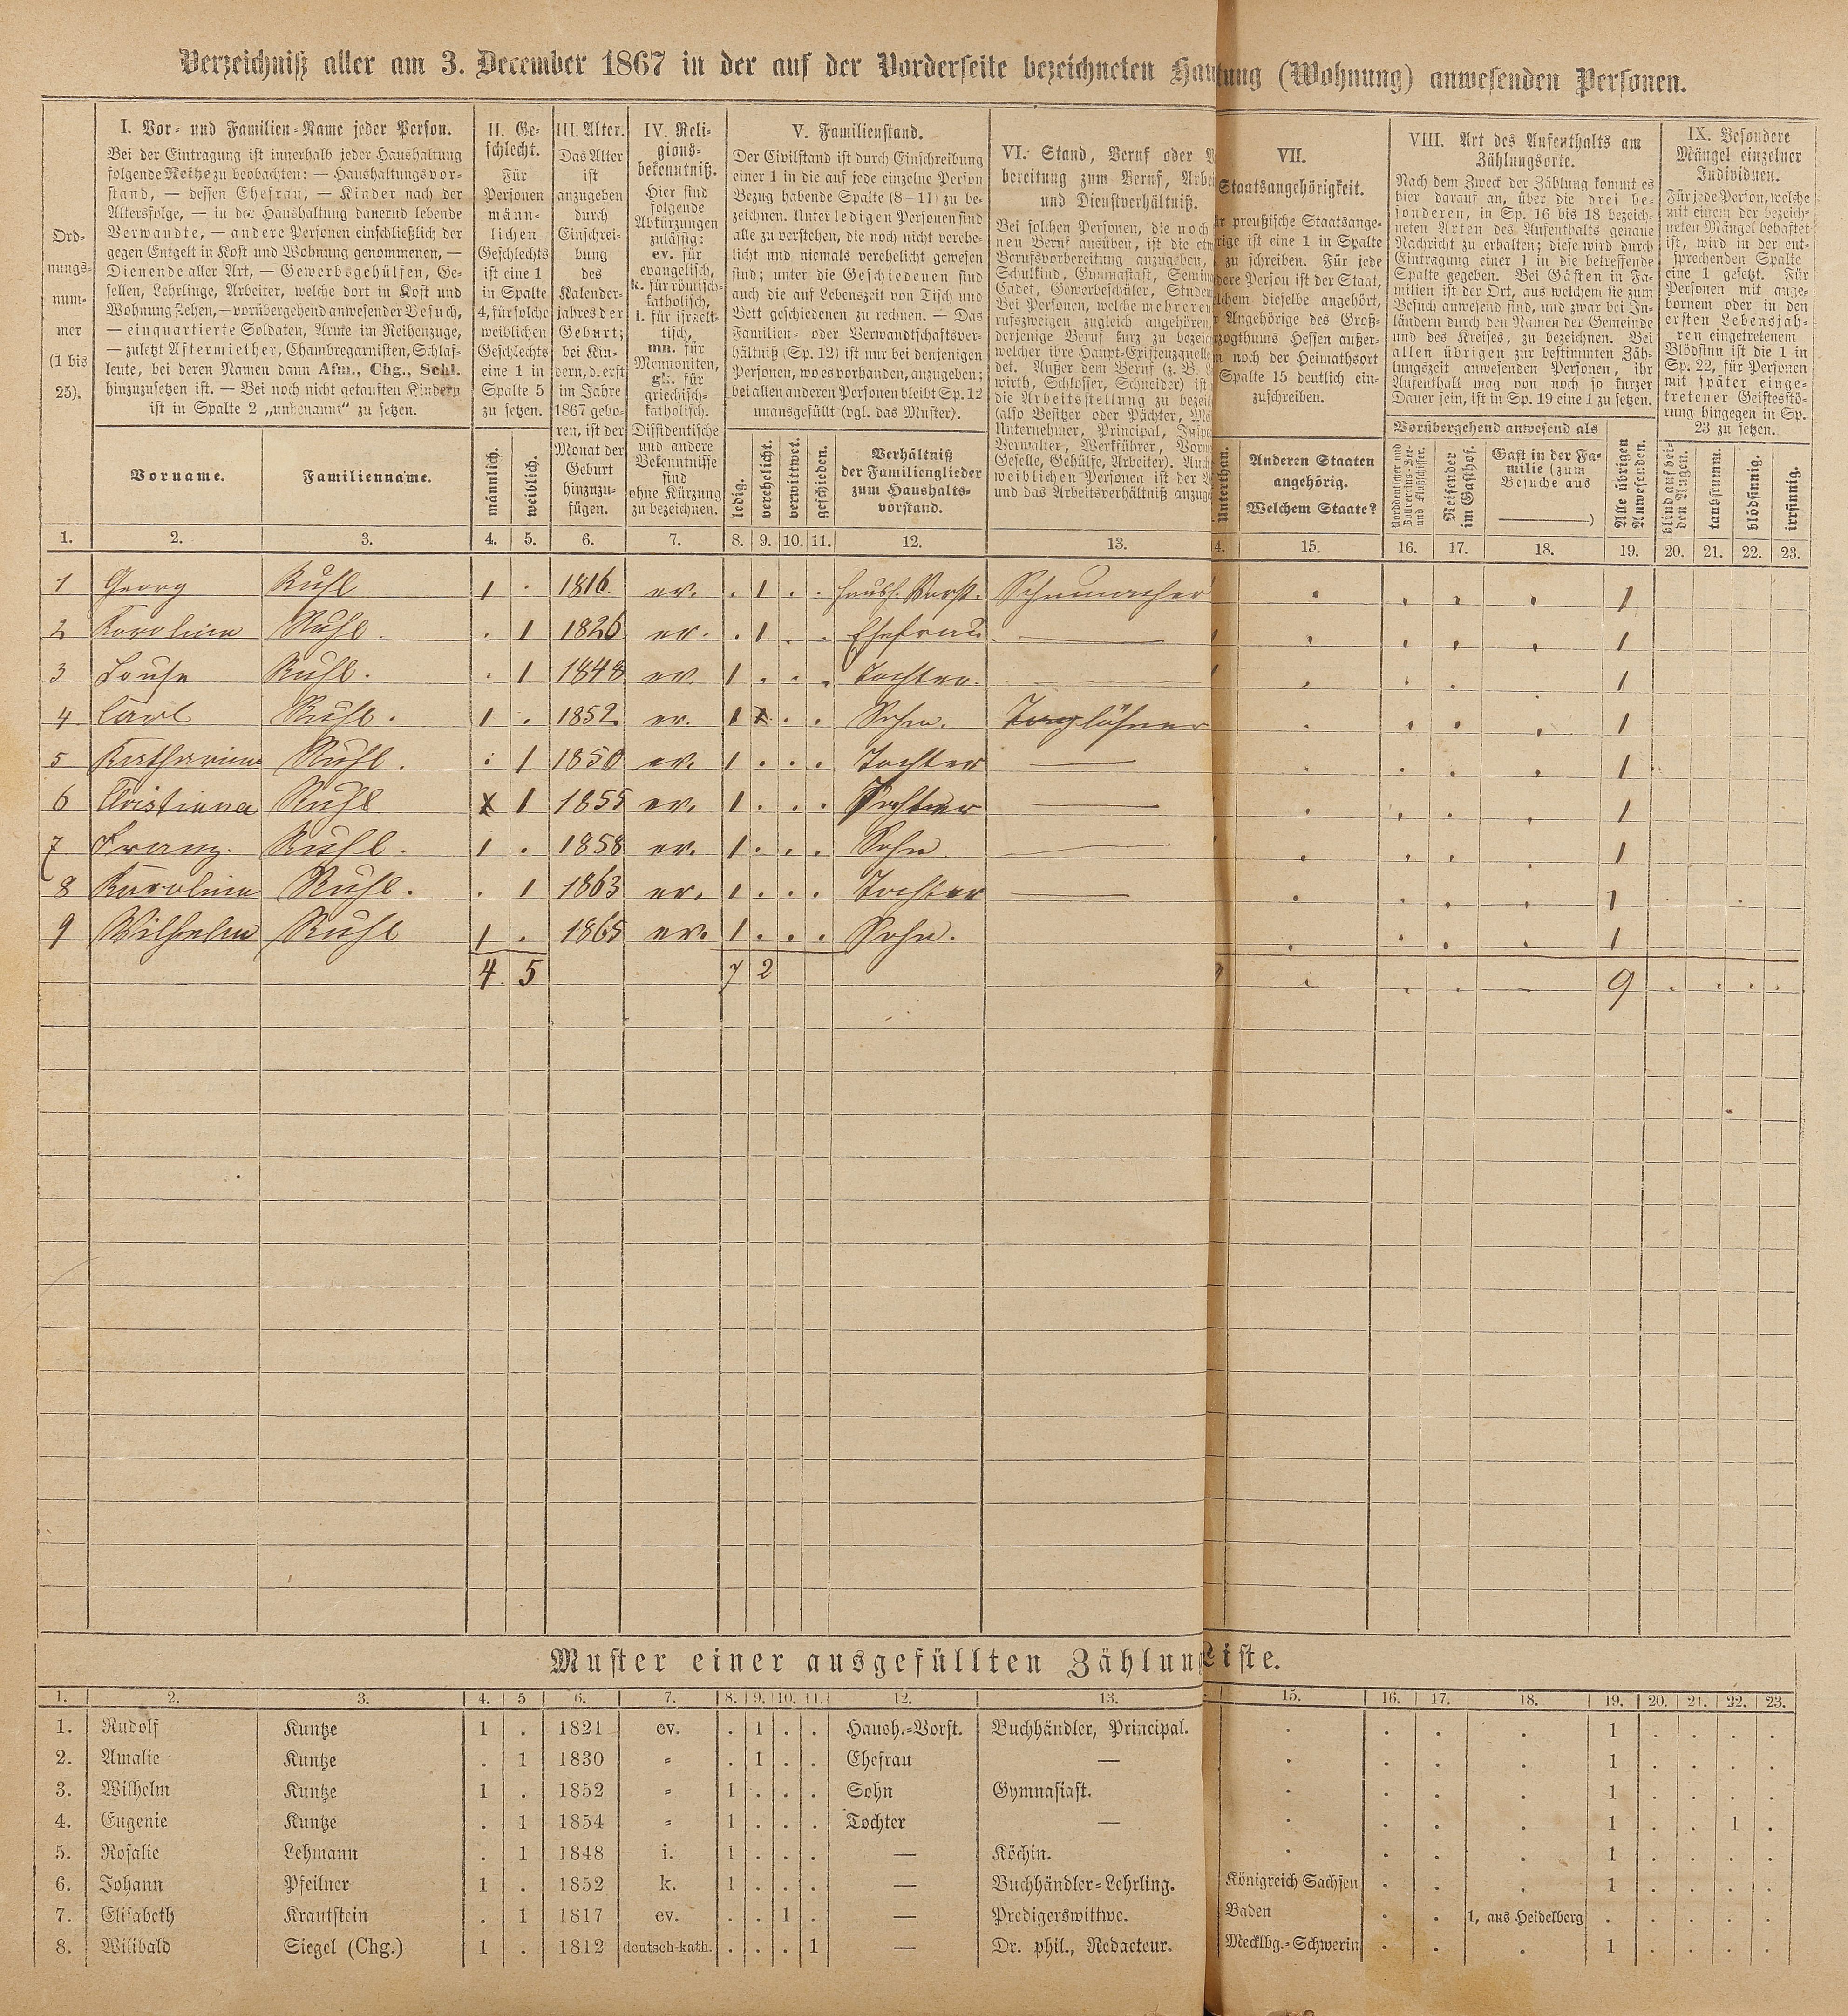 Verzeichniß aller am 3. December 1867 in der auf der Vorderseite bezeichneten Hau tung (Wohnung) anwesenden Personen.
Ord-
nungs-
num-
mer
(1 bis
25).
I. Vor- und Familien-Name jeder Person.
Bei der Eintragung ist innerhalb jeder Haushaltung
folgende Reihe zu beobachten: — Haushaltungsvor-
stand, — dessen Ehefrau, — Kinder nach der
Altersfolge, — in der Haushaltung dauernd lebende
Verwandte, — andere Personen einschließlich der
gegen Entgelt in Kost und Wohnung genommenen, —
Dienende aller Art, — Gewerbsgehülfen, Ge-
sellen, Lehrlinge, Arbeiter, welche dort in Kost und
Wohnung stehen, — vorübergehend anwesender Besuch,
— einquartierte Soldaten, Arme im Reihenzuge,
— zuletzt Aftermiether, Chambregarnisten, Schlaf-
leute, bei deren Namen dann Afm., Chg., Schl.
hinzuzusetzen ist. — Bei noch nicht getauften Kindern
ist in Spalte 2 „unbenannt" zu setzen.
Vorname.
Familienname.
II. Ge-
schlecht.
Für
Personen
männ-
lichen
Geschlechts
ist eine 1
in Spalte
4, für solche
weiblichen
Geschlechts
eine 1 in
Spalte 5
zu setzen.
männlich.
weiblich.
III. Alter.
Das Alter
ist
anzugeben
durch
Einschrei-
bung
des
Kalender-
jahres der
Geburt;
bei Kin-
dern, d. erst
im Jahre
1867 gebo-
ren, ist der
Monat der
Geburt
hinzuzu-
fügen.
IV. Reli-
gions-
bekenntniß.
Hier sind
folgende
Abkürzungen
zulässig:
ev. für
evangelisch,
k. für römisch-
katholisch,
i. für israeli-
tisch,
mn. für
Mennoniten,
gk. für
griechisch-
katholisch.
Dissidentische
und andere
Bekenntnisse
sind
ohne Kürzung
zu bezeichnen.
V. Familienstand.
Der Civilstand ist durch Einschreibung
einer 1 in die auf jede einzelne Person
Bezug habende Spalte (8—11) zu be-
zeichnen. Unter ledigen Personen sind
alle zu verstehen, die noch nicht verehe-
licht und niemals verehelicht gewesen
sind; unter die Geschiedenen sind
auch die auf Lebenszeit von Tisch und
Bett geschiedenen zu rechnen. — Das
Familien- oder Verwandtschaftsver-
hältniß (Sp. 12) ist nur bei denjenigen
Personen, wo es vorhanden, anzugeben;
bei allen anderen Personen bleibt Sp. 12
unausgefüllt (vgl. das Muster).
ledig.
verehelicht.
verwittwet.
geschieden.
Verhältniß
der Familienglieder
zum Haushalts-
vorstand.
VI. Stand, Beruf oder
bereitung zum Beruf, Arbei
und Dienstverhältniß.
Bei solchen Personen, die noch
nen Beruf ausüben, ist die etw
Berufsvorbereitung anzugeben,
Schulkind, Gymnasiast, Semin
Cadet, Gewerbeschüler, Studen
Bei Personen, welche mehreren
rufszweigen zugleich angehören,
derjenige Beruf kurz zu bezeich
welcher ihre Haupt-Existenzquelle
det. Außer dem Beruf (z. B.
wirth, Schlosser, Schneider) ist
die Arbeitsstellung zu bezeich
(also Besitzer oder Pächter, Me
Unternehmer, Principal, Inspe
Verwalter, Werkführer, Vorm
Geselle, Gehülfe, Arbeiter). Auch
weiblichen Personen ist der B
und das Arbeitsverhältniß anzuge
VII.
Staatsangehörigkeit.
r preußische Staatsange-
rige ist eine 1 in Spalte
zu schreiben. Für jede
dere Person ist der Staat,
lchem dieselbe angehört,
Angehörige des Groß-
zogthums Hessen außer-
noch der Heimathsort
Spalte 15 deutlich ein-
zuschreiben.
Unterthan.
Anderen Staaten
angehörig.
Welchem Staate?
VIII. Art des Aufenthalts am
Zählungsorte.
Nach dem Zweck der Zählung kommt es
hier darauf an, über die drei be-
sonderen, in Sp. 16 bis 18 bezeich-
neten Arten des Aufenthalts genaue
Nachricht zu erhalten; diese wird durch
Eintragung einer 1 in die betreffende
Spalte gegeben. Bei Gästen in Fa-
milien ist der Ort, aus welchem sie zum
Besuch anwesend sind, und zwar bei In-
ländern durch den Namen der Gemeinde
und des Kreises, zu bezeichnen. Bei
allen übrigen zur bestimmten Zäh-
lungszeit anwesenden Personen, ihr
Aufenthalt mag von noch so kurzer
Dauer sein, ist in Sp. 19 eine 1 zu setzen.
Vorübergehend anwesend als
Norddeutscher und
Zollvereins-See-
und Flußschiffer.
Reisender
im Gasthof.
Gast in der Fa-
milie (zum
Besuche aus
)
Alle übrigen
Anwesenden.
IX. Besondere
Mängel einzelner
Individuen.
Für jede Person, welche
mit einem der bezeich-
neten Mängel behaftet
ist, wird in der ent-
sprechenden Spalte
eine 1 gesetzt. Für
Personen mit ange-
bornem oder in den
ersten Lebensjah-
ren eingetretenem
Blödsinn ist die 1 in
Sp. 22, für Personen
mit später einge-
tretener Geistesstö-
rung hingegen in Sp.
23 zu setzen.
blind auf bei-
den Augen.
taubstumm.
blödsinnig.
irrsinnig.
1. 2. 3. 4. 5. 6. 7. 8. 9. 10. 11. 12. 13. 4. 15. 16. 17. 18. 19. 20. 21. 22. 23.
1 Georg Ruhl 1 . 1816 ev. . 1 . . Haush. Vorst. Schumacher . . . . 1
2 Karolina Ruhl . . 1 1826 ev. . 1 . . Ehefrau — . . . . 1
3 Louise Ruhl. . 1 1848 ev. 1 . . . Tochter. — . . . 1
4 Carl Ruhl. 1 . 1852 ev. 1 . . Sohn. Taglöhner . . . . 1
5 Katharina Ruhl. . 1 1850 ev. 1 . . . Tochter — . . . . 1
6 Cristiana Ruhl 1 1855 ev. 1 . . . Tochter — . . . . 1
7 Franz. Ruhl. 1 . 1858 ev. 1 . . . Sohn — . . . . 1
8 Karolina Ruhl. . 1 1863 ev. 1 . . . Tochter — . . . . 1
9 Wilhelm Ruhl 1 . 1865 ev. 1 . . . Sohn. . . . . 1
4 5 7 2 . . . 9 . . . .
Muster einer ausgefüllten Zählun Liste.
1. 2. 3. 4. 5 6. 7. 8. 9. 10. 11. 12. 13. 15. 16. 17. 18. 19. 20. 21. 22. 23.
1. Rudolf Kuntze 1 . 1821 ev. . 1 . . Haush.-Vorst. Buchhändler, Principal. . . . . 1 . . . .
2. Amalie Kuntze . 1 1830 = . 1 . . Ehefrau — . . . . 1 . . . .
3. Wilhelm Kuntze 1 . 1852 = 1 . . . Sohn Gymnasiast. . . . . 1 . . . .
4. Eugenie Kuntze . 1 1854 = 1 . . . Tochter — . . . . 1 . . 1 .
5. Rosalie Lehmann . 1 1848 i. 1 . . . — Köchin. . . . . 1 . . . .
6. Johann Pfeilner 1 . 1852 k. 1 . . . — Buchhändler-Lehrling. Königreich Sachsen . . . 1 . . . .
7. Elisabeth Krautstein . 1 1817 ev. . . 1 . — Predigerswittwe. Baden . . 1, aus Heidelberg . . . . .
8. Wilibald Siegel (Chg.) 1 . 1812 deutsch-kath. . . . 1 — Dr. phil., Redacteur. Mecklbg.-Schwerin . . . 1 . . . .